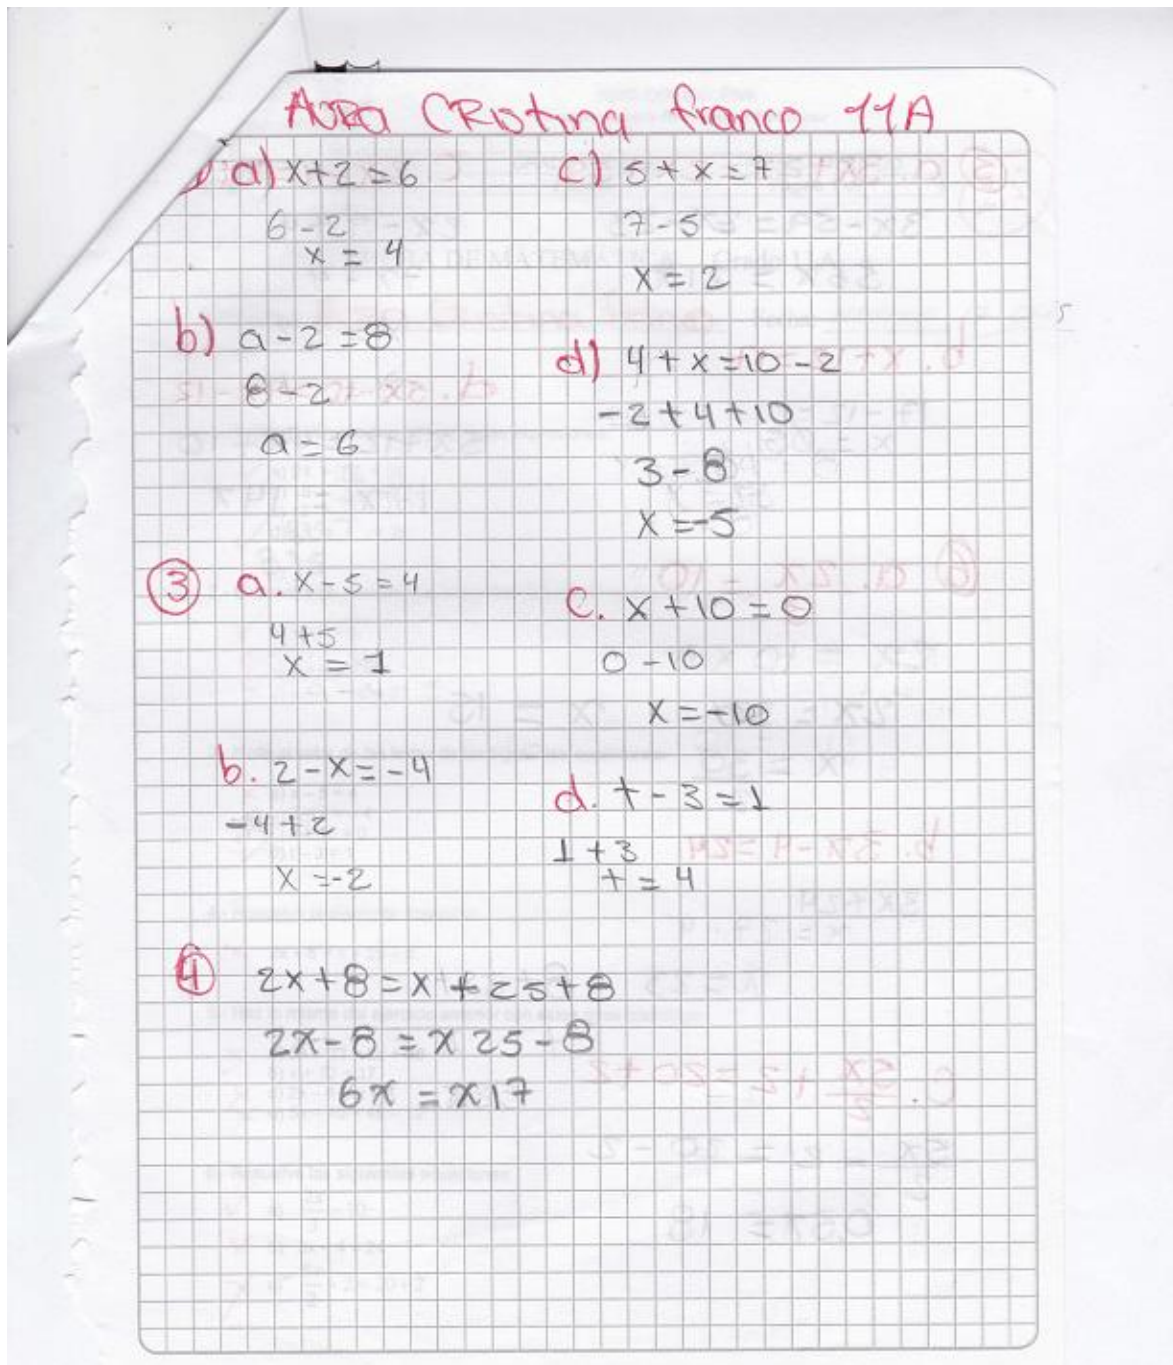 AURA CRistina franco 11A
a) x+2=6
6-2
x = 4
b) a-2=8
8-2
a=6
c) 5+x=7
7-5
x=2
d) 4+x=10-2
-2+4+10
3-8
x=-5
③ a. x-5=4
4+5
x = 1
b. 2-x=-4
-4+2
x=-2
c. x+10=0
0-10
x=-10
d. t-3=1
1+3
t=4
④ 2x+8=x+25+8
2x-8=x 25-8
6x=x17